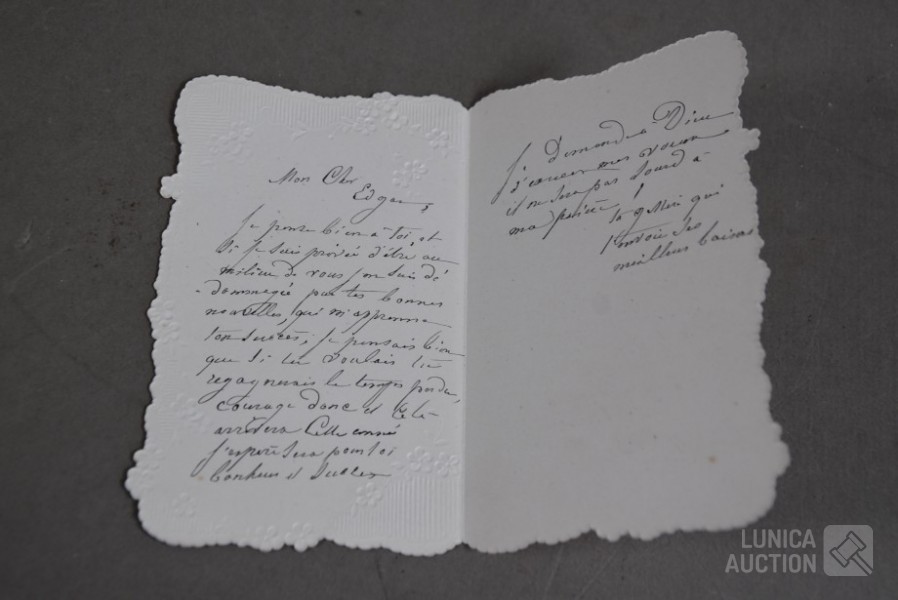 Mon Cher
Edgar,
Je pense bien à toi, et
si je suis privée d'être au
milieu de vous j'en suis dé
dommagée par tes bonnes
nouvelles, qui m'apprenne
ton succès; je pensais bien
que si tu voulais tu
regagnerais le temps perdu,
courage donc et
arrivera Cette année
j'espère sera pour toi
bonheur et succès
Je Demande à Dieu
d'exaucer mes vœux
il ne sera pas sourd à
ma prière!
ta qui
t'envoie ses
meilleurs baisers
LUNICA
AUCTION